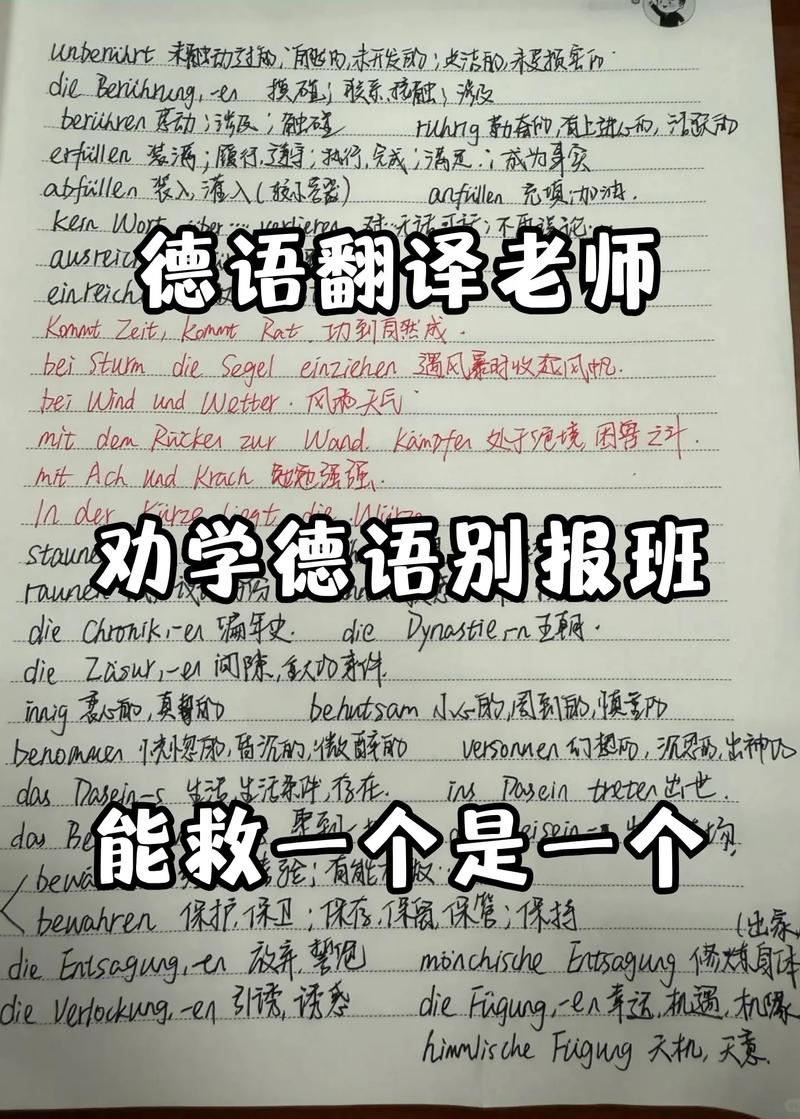 unberührt 未触动过的,自然的,未开发的;贞洁的,未受损害的
die Berührung,-en 摸碰;联系,接触;涉及
berühren 感动;涉及;触碰 rührig 勤奋的,有上进心的,活跃的
erfüllen 装满;履行,遵守;执行,完成;满足;成为事实
abfüllen 装入,灌入(较小容器) anfüllen 充填;加油.
kein Wort über … verlieren 对…无话可说;不再谈论.
ausreich
德语翻译老师
einreich
Kommt Zeit, kommt Rat. 功到自然成.
bei Sturm die Segel einziehen 遇风暴时收起风帆.
bei Wind und Wetter. 风雨天气
mit dem Rücken zur Wand. kämpfen 处于绝境,困兽之斗.
mit Ach und Krach 勉勉强强.
In der Kürze liegt die Würze
staune
劝学德语别报班
raunen
die Chronik,-en 编年史. die Dynastie,-n 王朝.
die Zäsur,-en 间隙,重大的事件.
innig 衷心的,真挚的 behutsam 小心的,周到的,慎重的
benommen 恍惚的,昏沉的,微醉的 versonnen 幻想的,沉思的,出神的
das Dasein-s 生活,生活条件,存在. ins Dasein treten 出世.
das Be
能救一个是一个
bewä
bewahren 保护,保卫;保存,保留,保管;保持
(出家
die Entsagung,-en 放弃,誓绝 mönchische Entsagung 修炼身体
die Verlockung,-en 引诱,诱惑 die Fügung,-en 幸运,机遇,机缘
himmlische Fügung 天机,天意.